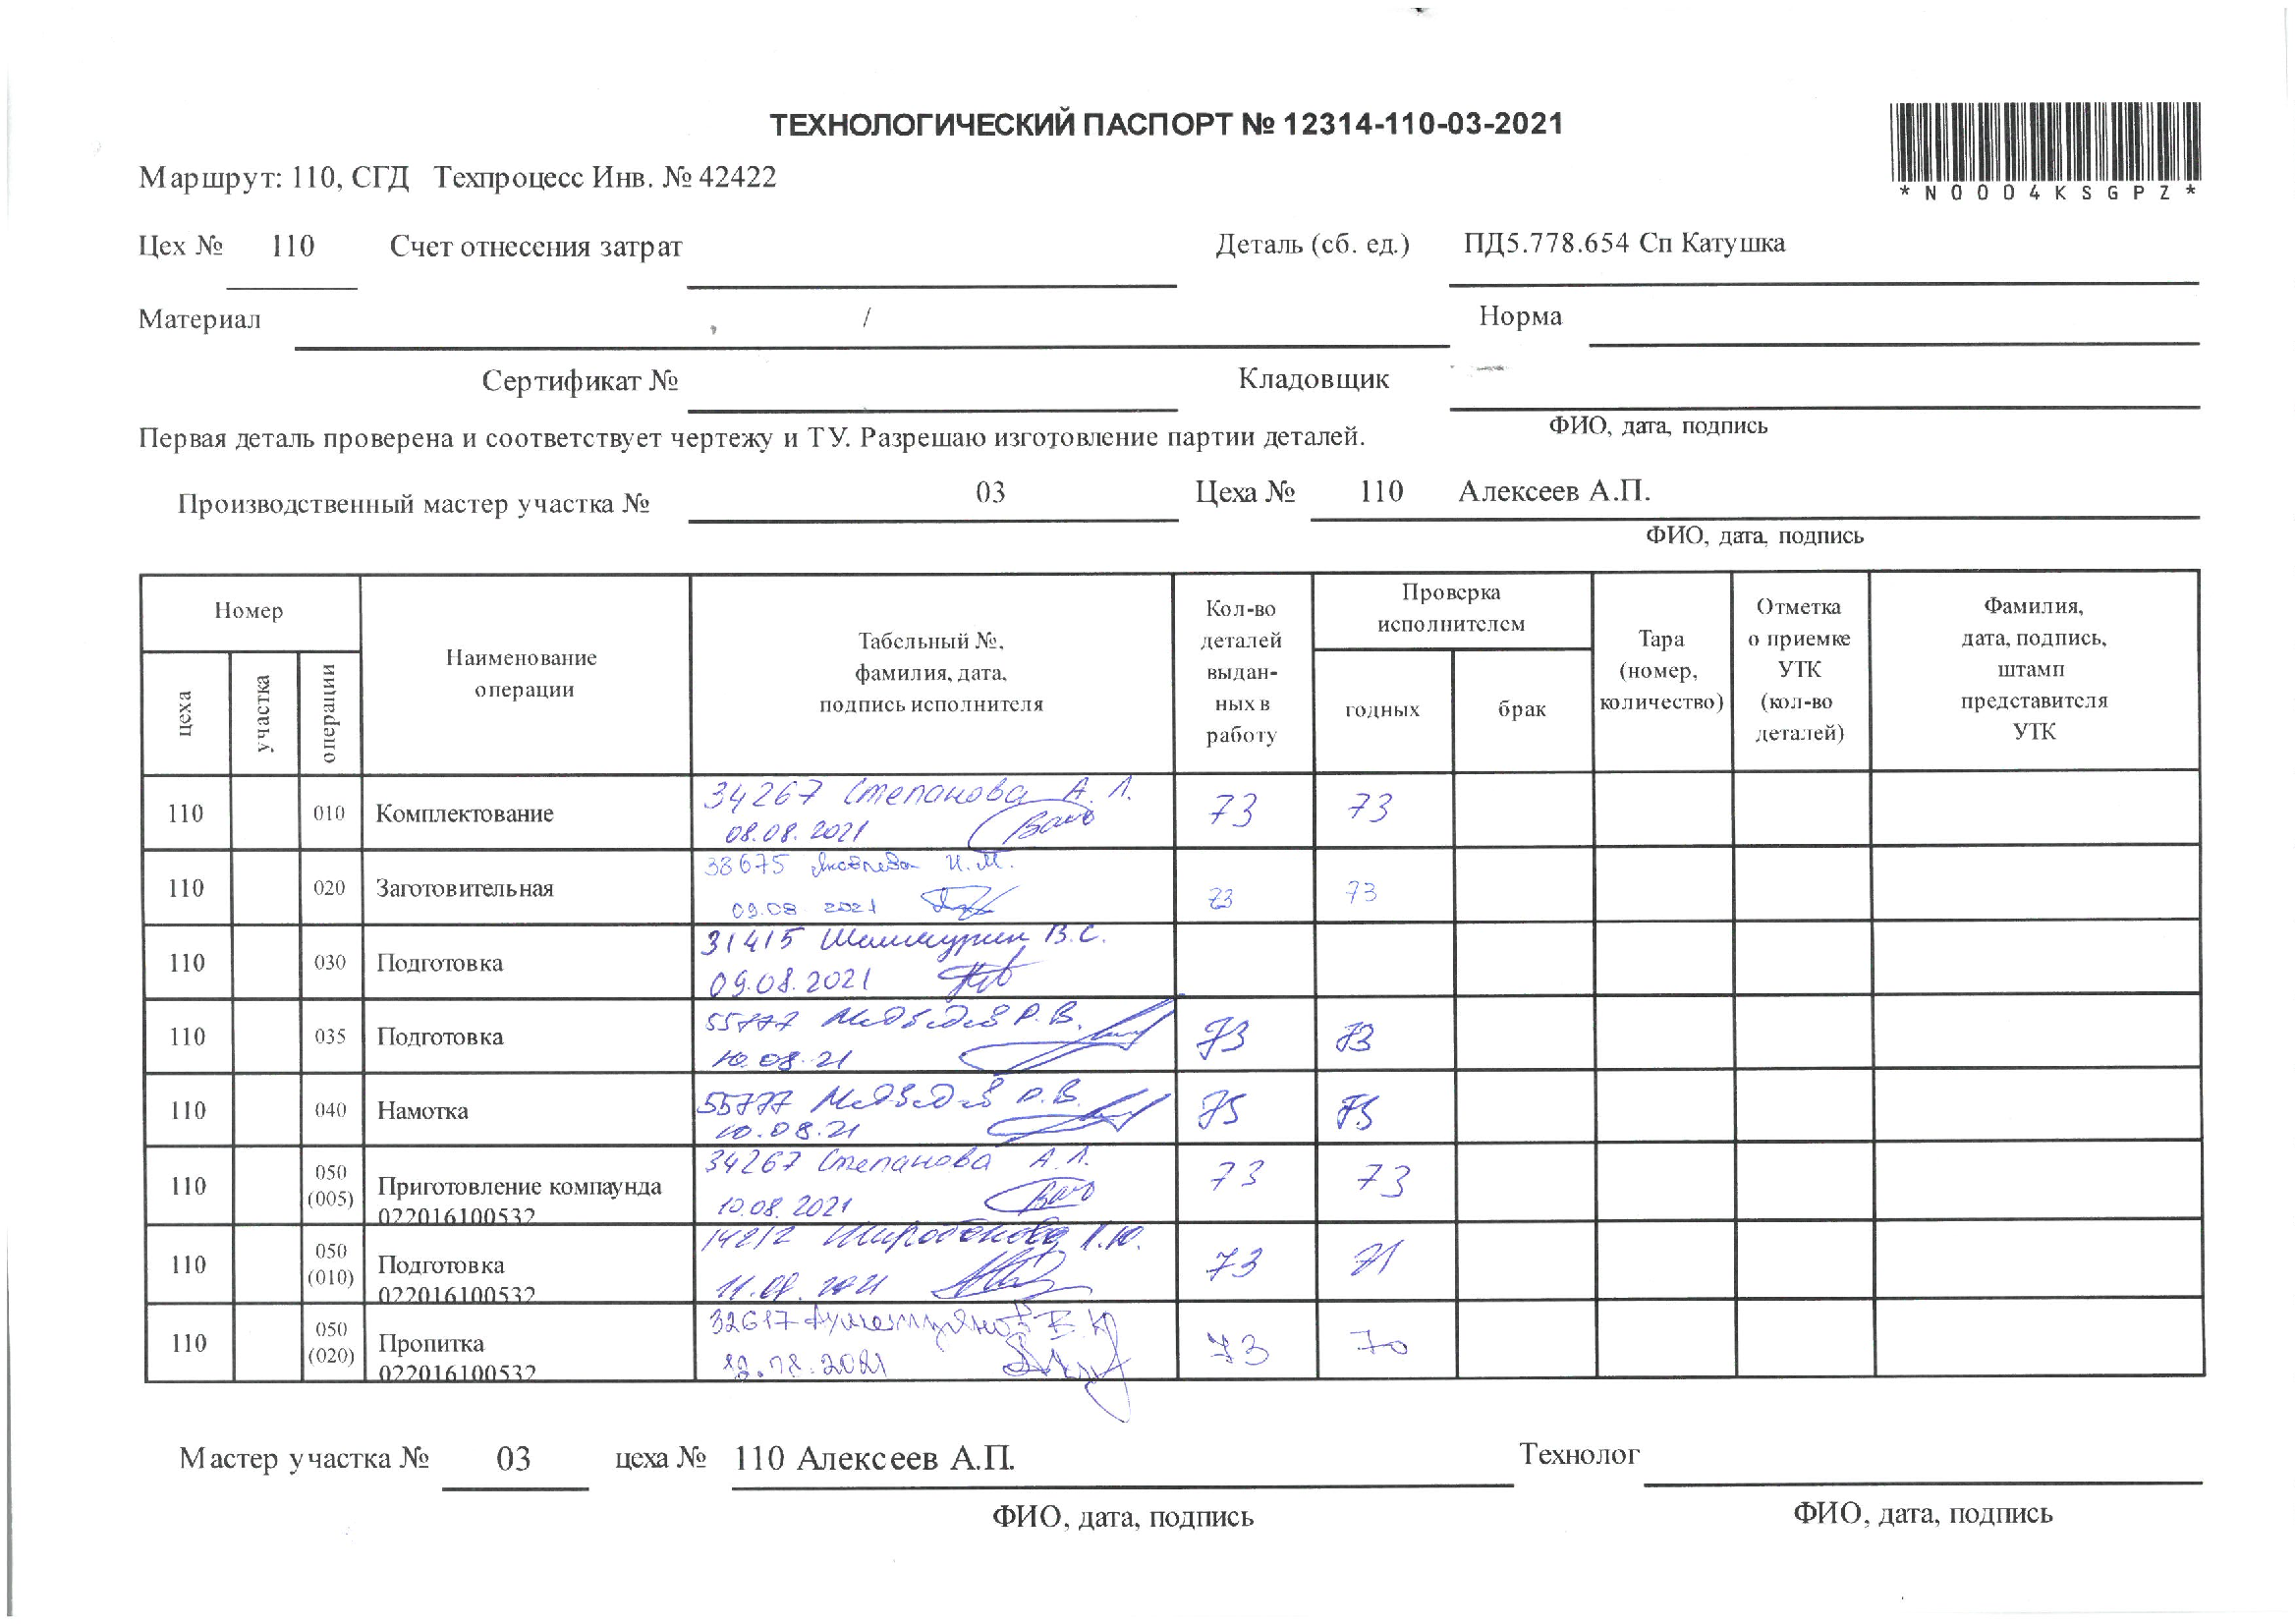 ТЕХНОЛОГИЧЕСКИЙ ПАСПОРТ № 12314-110-03-2021
* N 0 0 0 4 K S G P Z *
Маршрут: 110, СГД Техпроцесс Инв. № 42422
Цех № 110 Счет отнесения затрат Деталь (сб. ед.) ПД5.778.654 Сп Катушка
Материал , / Норма
Сертификат № Кладовщик
ФИО, дата, подпись
Первая деталь проверена и соответствует чертежу и ТУ. Разрешаю изготовление партии деталей.
Производственный мастер участка № 03 Цеха № 110 Алексеев А.П.
ФИО, дата, подпись
Номер
цеха
участка
операции
Наименование
операции
Табельный №,
фамилия, дата,
подпись исполнителя
Кол-во
деталей
выдан-
ных в
работу
Проверка
исполнителем
годных
брак
Тара
(номер,
количество)
Отметка
о приемке
УТК
(кол-во
деталей)
Фамилия,
дата, подпись,
штамп
представителя
УТК
110 010 Комплектование 34267 Степанова А. Л. 73 73
08.08.2021
110 020 Заготовительная 38675 Яковлева И.М. 73 73
09.08 2021
110 030 Подготовка 31415 Шашмурин В.С.
09.08.2021
110 035 Подготовка 55777 Медведев Р.В. 73 73
10.08.21
110 040 Намотка 55777 Медведев Р.В. 75 75
10.08.21
110 050 (005) Приготовление компаунда 34267 Степанова А.Л. 73 73
022016100532 10.08.2021
110 050 (010) Подготовка 14212 Широбокова 73 71
022016100532 11.08.2021
110 050 (020) Пропитка 32617 73 70
022016100532 12.08.2021
Мастер участка № 03 цеха № 110 Алексеев А.П. Технолог
ФИО, дата, подпись ФИО, дата, подпись